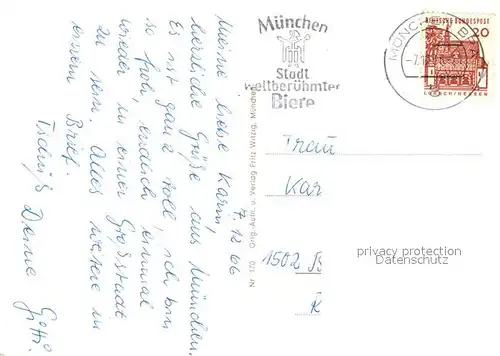 7.12.66
Meine liebe Karin,
herzliche Grüße aus München.
Es ist ganz toll, ich bin
so froh, endlich einmal
wieder in einer Großstadt
zu sein. Alles weitere in
einem Brief.
Tschüß Deine
Orig.-Aufn. u. Verlag Fritz Witzig, München
Nr. 170
München
Stadt
weltberühmter
Biere
MÜNCH
DEUTSCHE BUNDESPOST
20
Frau
Kar
1502 B
privacy protection
Datenschutz